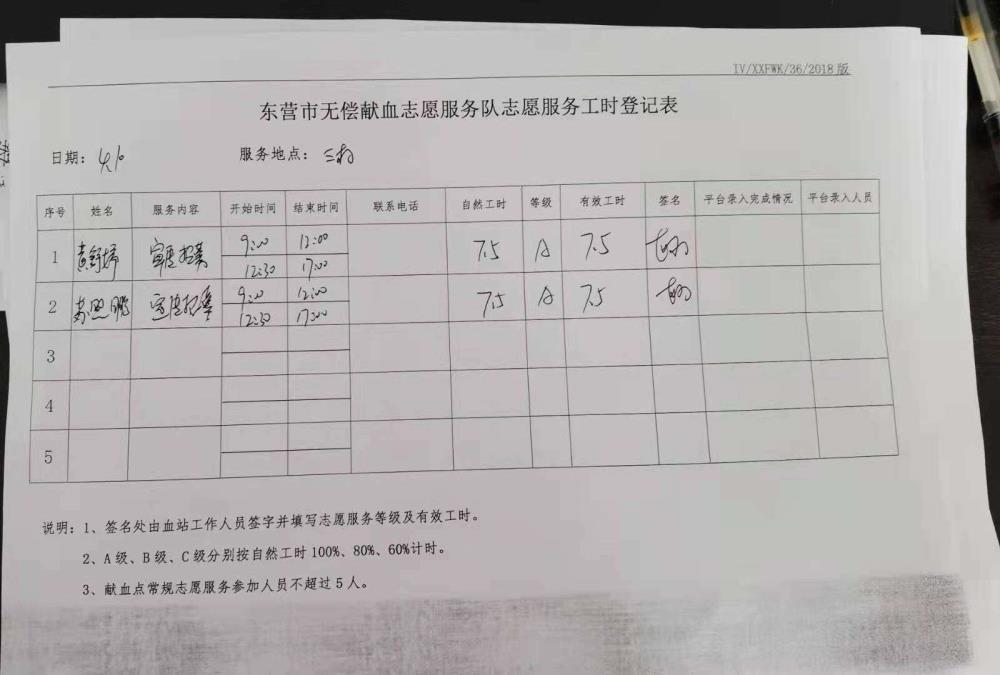 IV/XXFWK/36/2018版
东营市无偿献血志愿服务队志愿服务工时登记表
日期： 服务地点：
序号 姓名 服务内容 开始时间 结束时间 联系电话 自然工时 等级 有效工时 签名 平台录入完成情况 平台录入人员
1 宣传招募 9:00 12:00 7.5 A 7.5
12:30 17:00
2 苏照鹏 宣传招募 9:00 12:00 7.5 A 7.5
12:30 17:00
3
4
5
说明：1、签名处由血站工作人员签字并填写志愿服务等级及有效工时。
2、A 级、B 级、C 级分别按自然工时 100%、80%、60%计时。
3、献血点常规志愿服务参加人员不超过 5 人。